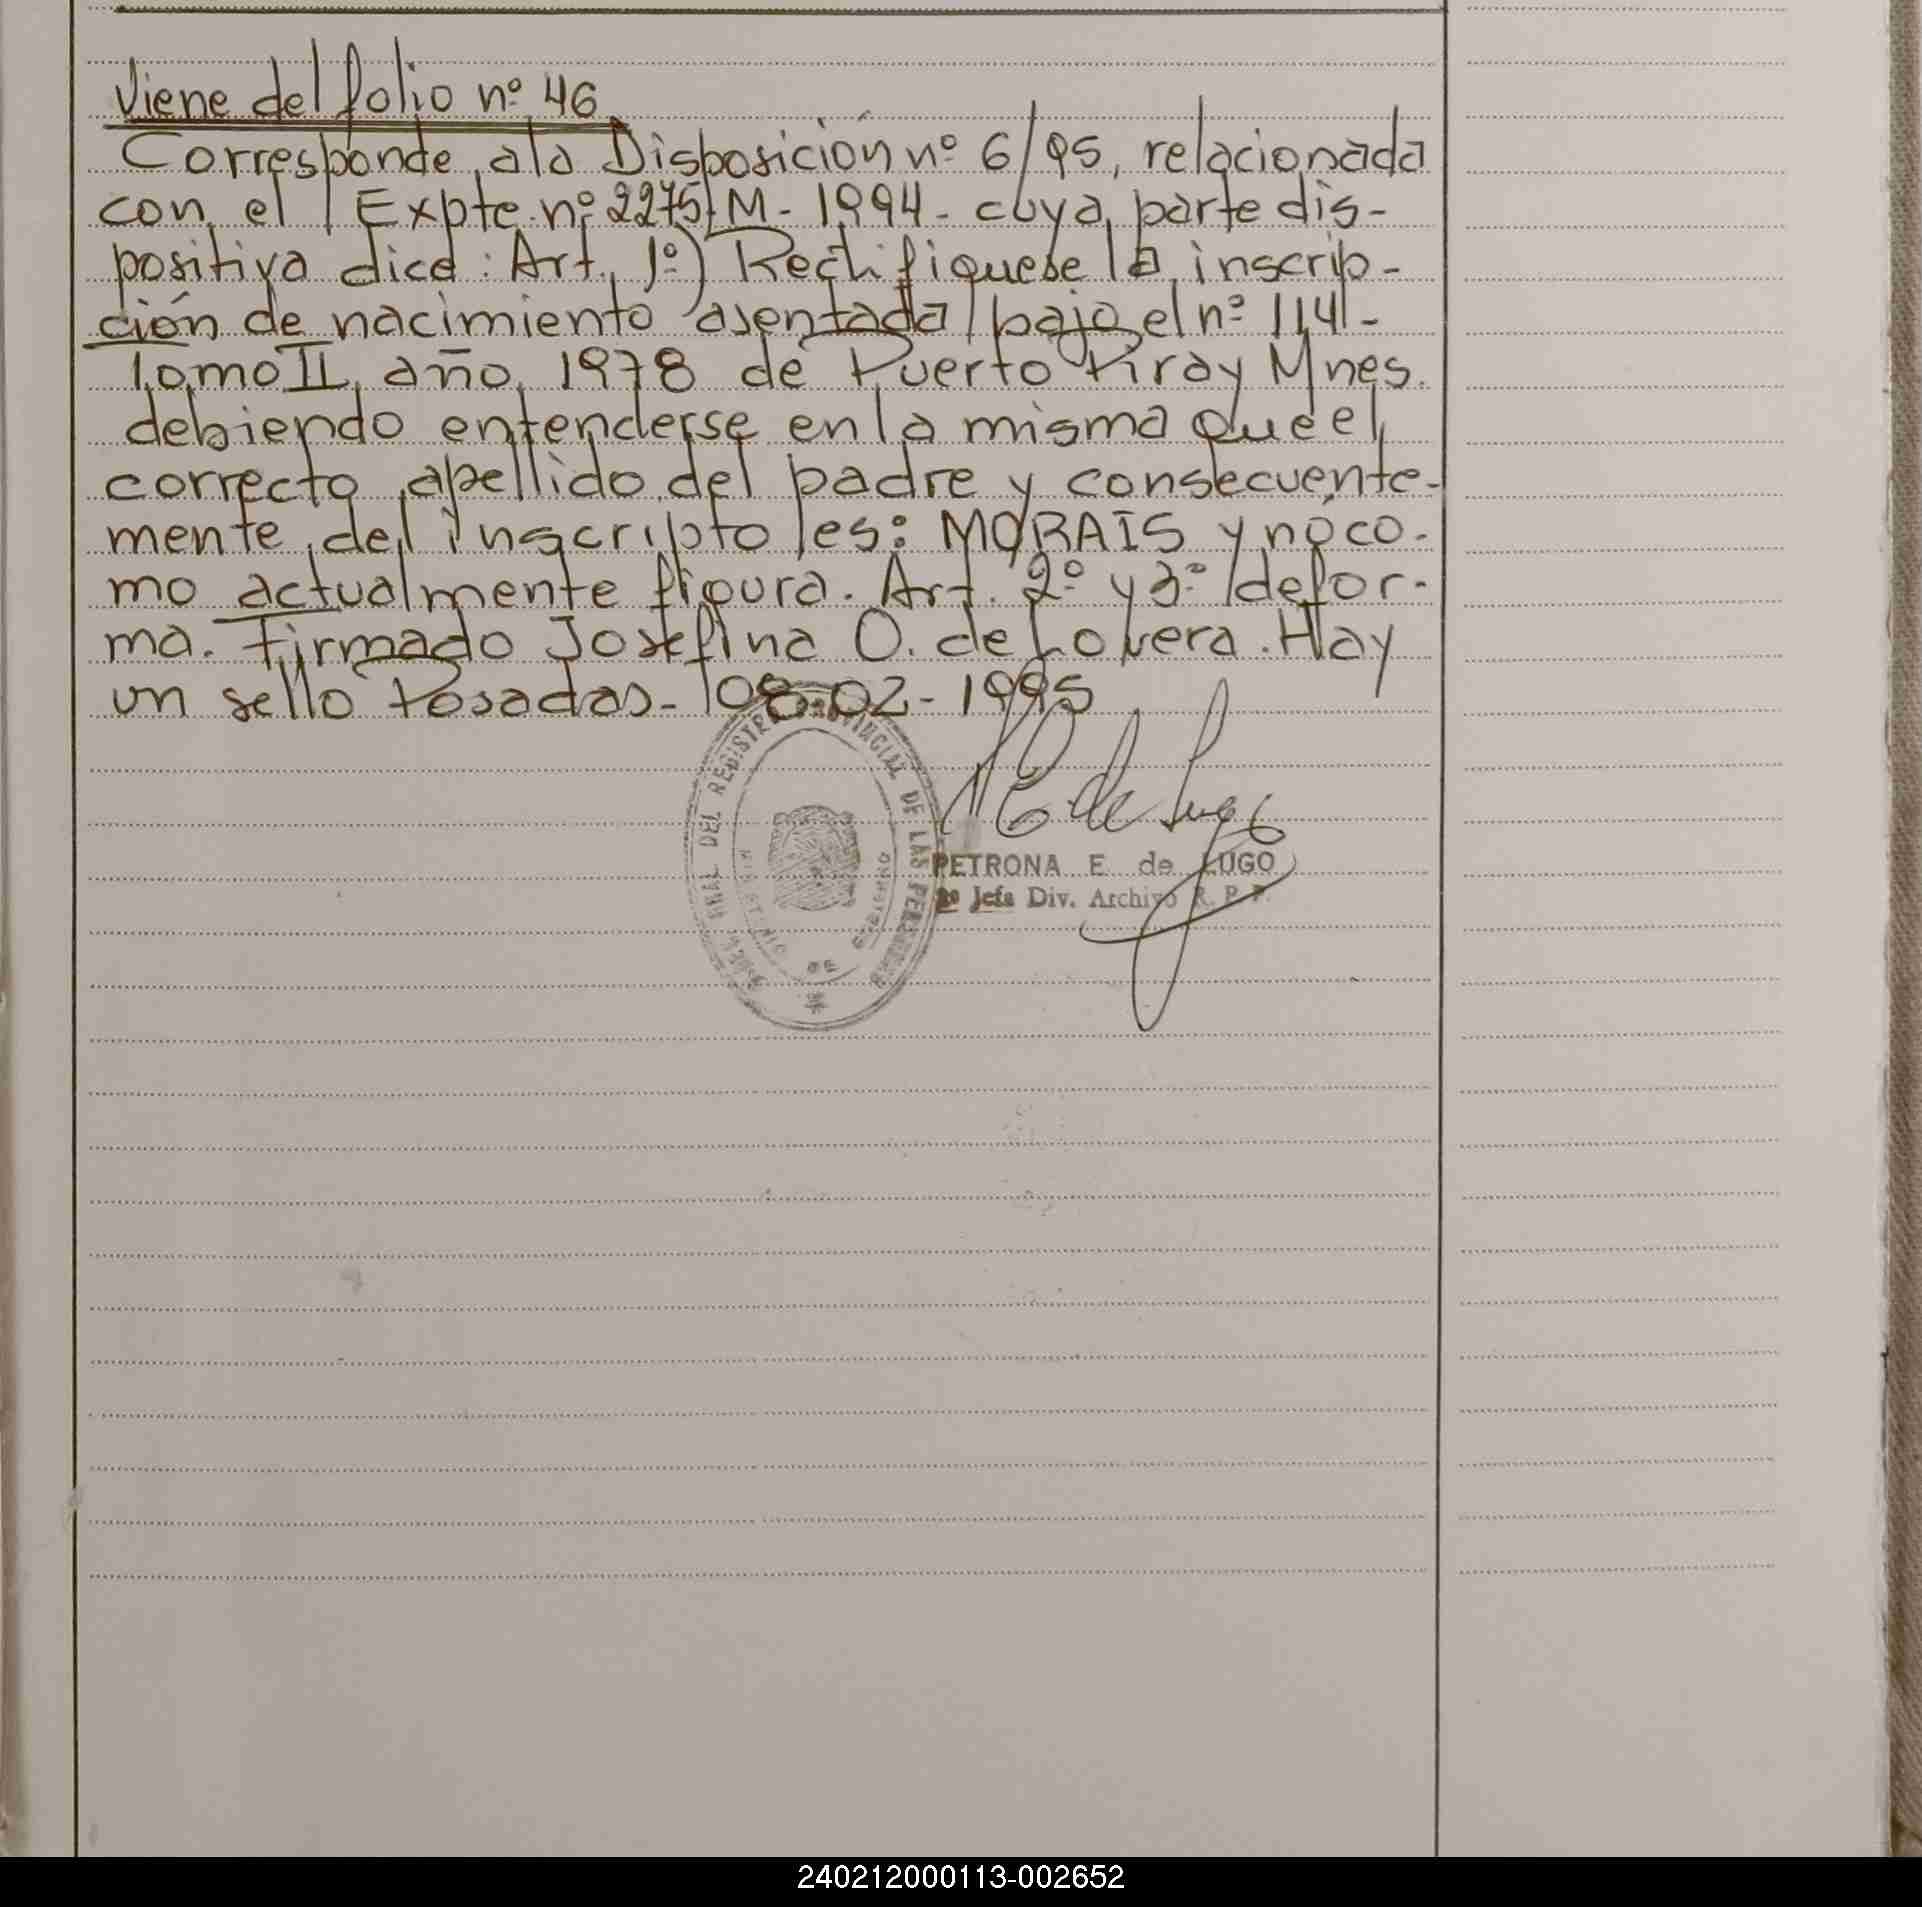 Viene del folio nº 46
Corresponde a la Disposición nº 6/95, relacionada
con el Expte. nº 2275/M-1994- cuya parte dis-
positiva dice: Art. 1º) Rectifiquese la inscrip-
ción de nacimiento asentada bajo el nº 1141-
Tomo II año 1978 de Puerto Piray Mnes.
debiendo entenderse en la misma que el
correcto apellido del padre y consecuente-
mente del inscripto es: MORAIS y nó co-
mo actualmente figura. Art. 2º y 3º de for-
ma. Firmado Josefina O. de Lovera. Hay
un sello Posadas- 08-02-1995
DEL REGISTRO PROVINCIAL DE LAS PERSONAS
MINISTERIO DE GOBIERNO
E de Lugo
PETRONA E. de LUGO
2º Jefa Div. Archivo R. P. P.
240212000113-002652